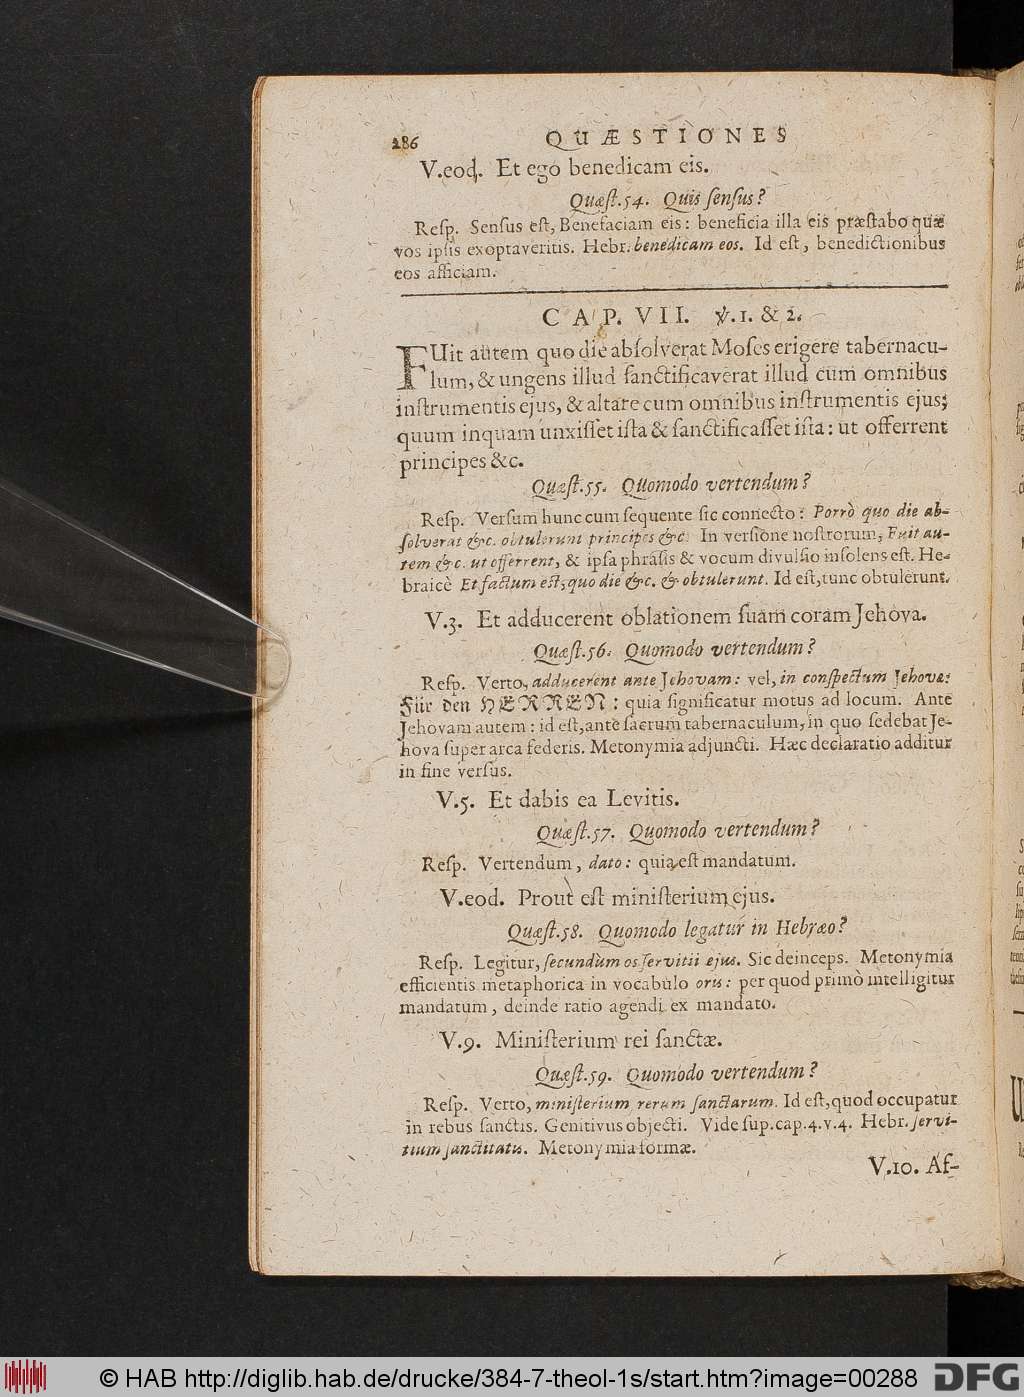 286 QUÆSTIONES
V.eod. Et ego benedicam eis.
Quæſt.54. Quis ſenſus?
Reſp. Senſus eſt, Benefaciam eis: beneficia illa eis præſtabo quæ
vos ipſis exoptaveritis. Hebr. benedicam eos. Id eſt, benedictionibus
eos afficiam.
CAP. VII. ℣.1. & 2.
FUit autem quo die abſolverat Moſes erigere tabernacu-
lum, & ungens illud ſanctificaverat illud cum omnibus
inſtrumentis ejus, & altare cum omnibus inſtrumentis ejus;
quum inquam unxiſſet iſta & ſanctificaſſet iſta: ut offerrent
principes &c.
Quæſt.55. Quomodo vertendum?
Reſp. Verſum hunc cum ſequente ſic connecto: Porrò quo die ab-
ſolverat &c. obtulerunt principes &c. In verſione noſtrorum, Fuit au-
tem &c. ut offerrent, & ipſa phraſis & vocum divulſio inſolens eſt. He-
braicè Et factum eſt, quo die &c. & obtulerunt. Id eſt, tunc obtulerunt.
V.3. Et adducerent oblationem ſuam coram Jehova.
Quæſt.56. Quomodo vertendum?
Reſp. Verto, adducerent ante Jehovam: vel, in conſpectum Jehovæ:
Für den HERREN: quia ſignificatur motus ad locum. Ante
Jehovam autem: id eſt, ante ſacrum tabernaculum, in quo ſedebat Je-
hova ſuper arca fœderis. Metonymia adjuncti. Hæc declaratio additur
in fine verſus.
V.5. Et dabis ea Levitis.
Quæſt.57. Quomodo vertendum?
Reſp. Vertendum, dato: quia eſt mandatum.
V.eod. Prout eſt miniſterium ejus.
Quæſt.58. Quomodo legatur in Hebræo?
Reſp. Legitur, ſecundùm os ſervitii ejus. Sic deinceps. Metonymia
efficientis metaphorica in vocabulo oris: per quod primò intelligitur
mandatum, deinde ratio agendi ex mandato.
V.9. Miniſterium rei ſanctæ.
Quæſt.59. Quomodo vertendum?
Reſp. Verto, miniſterium rerum ſanctarum. Id eſt, quod occupatur
in rebus ſanctis. Genitivus objecti. Vide ſup. cap. 4. v. 4. Hebr. ſervi-
tium ſanctitatis. Metonymia formæ.
V.10. Af-
© HAB http://diglib.hab.de/drucke/384-7-theol-1s/start.htm?image=00288
DFG